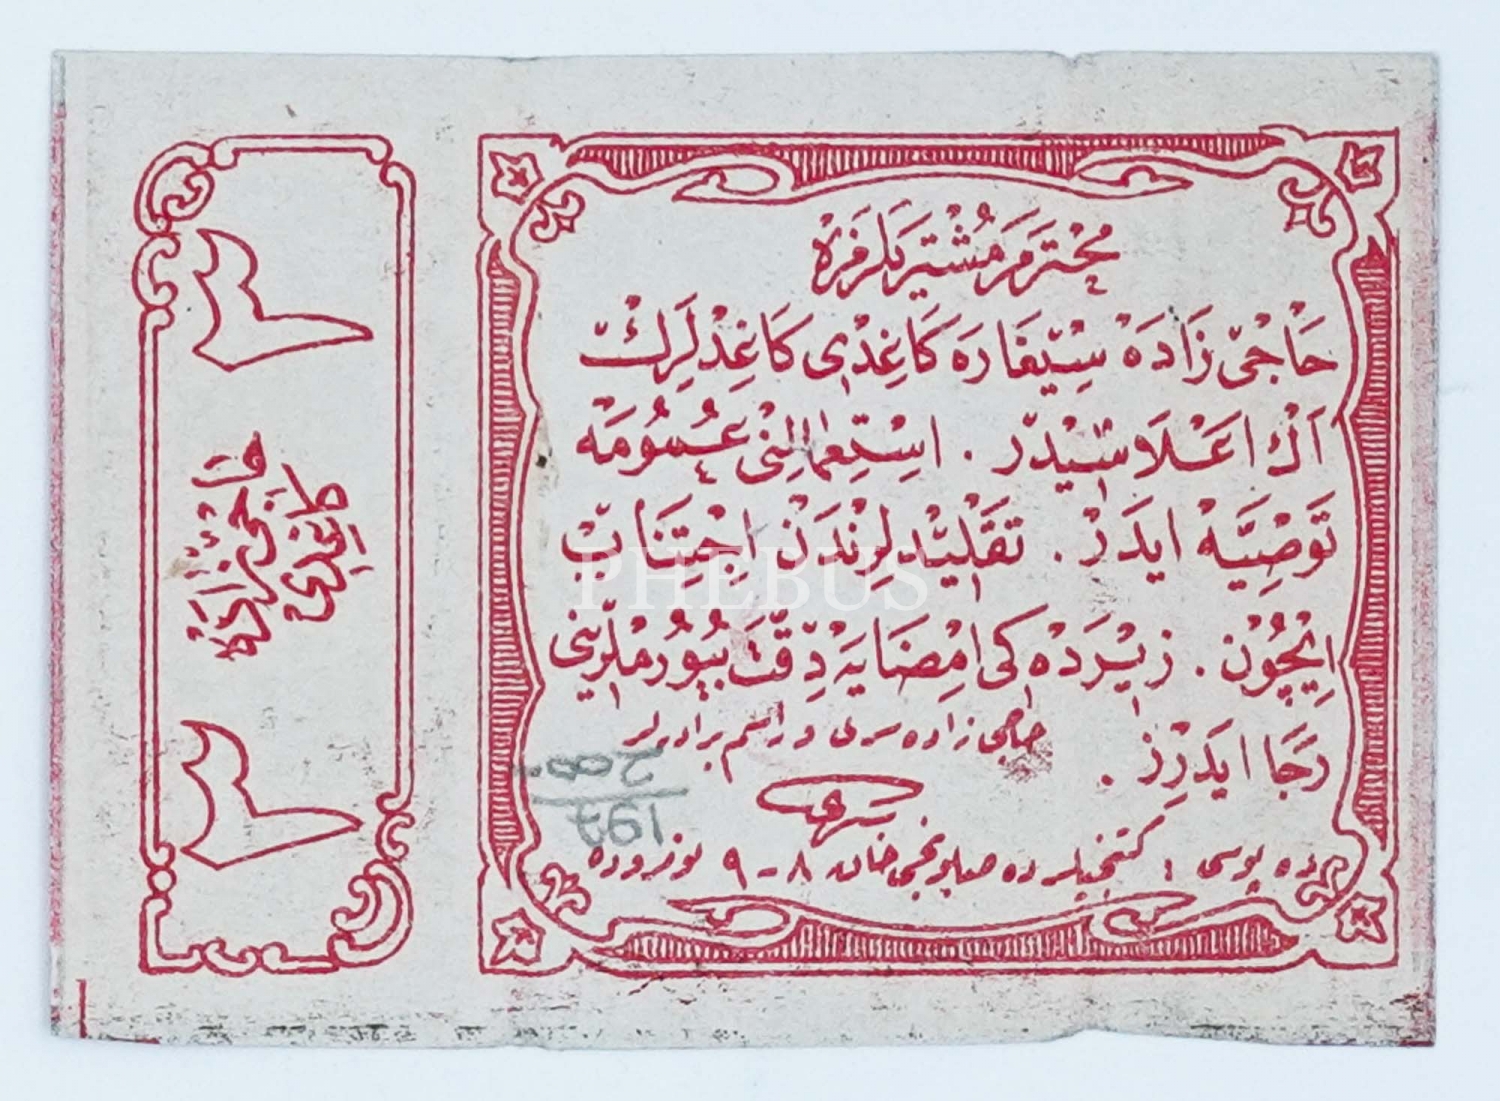 محترم مشتریلرمزه
حاجی زاده سیغاره کاغدی کاغدلرك
اك اعلاسیدر . استعمالنی عمومه
توصیه ایدر . تقلیدلرندن اجتناب
ایچون . زیرده کی امضایه دقت بیورملرینی
رجا ایدرز .
حاجی زاده سری و راسم برادرلر
ده پوسی : کتنجیلرده صابونجی خان ٨ - ٩ نومروده
٢
حاجی زاده
کاغدی
٢
PHEBUS
200
197